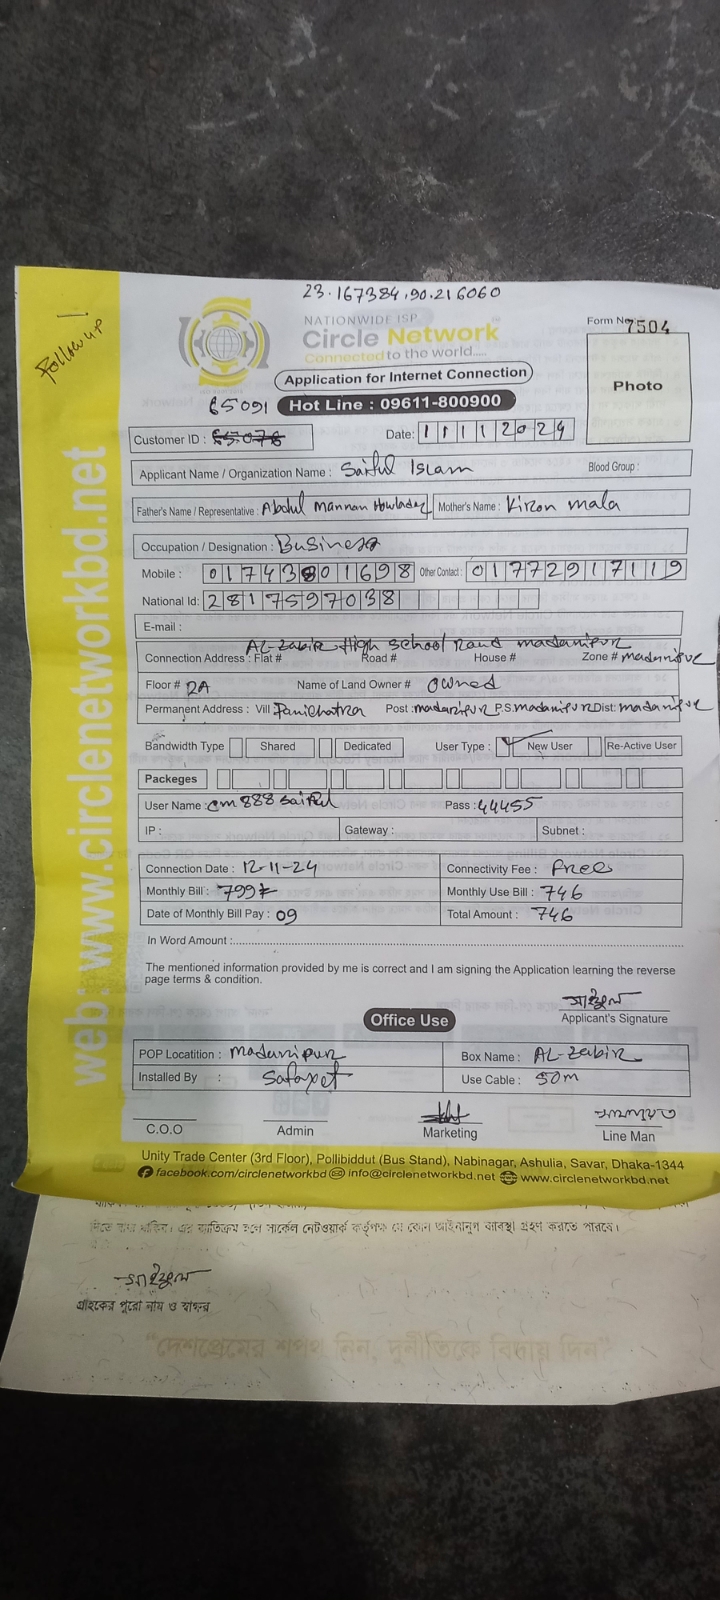 23.167384,90.216060
Follow up
NATIONWIDE ISP
Circle Network
Connected to the world.....
Form No 7504
Application for Internet Connection
Photo
65091 Hot Line : 09611-800900
Customer ID : 65078 Date: 11112024
Applicant Name / Organization Name : Saiful Islam Blood Group :
Father's Name / Representative : Abdul Mannan Howlader Mother's Name : Kiron mala
Occupation / Designation : Business
Mobile : 01743801698 Other Contact : 01772917119
National Id: 2817597038
E-mail :
AL-Zabir High School Road madaripur
Connection Address : Flat # Road # House # Zone # madaripur
Floor # 2A Name of Land Owner # Owned
Permanent Address : Vill Panichatra Post : madaripur P.S. madaripur Dist: madaripur
Bandwidth Type Shared Dedicated User Type : New User Re-Active User
Packeges
User Name : cm888saiful Pass : 44455
IP : Gateway : Subnet :
Connection Date : 12-11-24 Connectivity Fee : Free
Monthly Bill : 799 Monthly Use Bill : 746
Date of Monthly Bill Pay : 09 Total Amount : 746
In Word Amount :
The mentioned information provided by me is correct and I am signing the Application learning the reverse
page terms & condition.
সাইফুল
Applicant's Signature
Office Use
POP Locatition : madaripur Box Name : AL-Zabir
Installed By : Use Cable : 50m
C.O.O Admin Marketing Line Man
Unity Trade Center (3rd Floor), Pollibiddut (Bus Stand), Nabinagar, Ashulia, Savar, Dhaka-1344
facebook.com/circlenetworkbd info@circlenetworkbd.net www.circlenetworkbd.net
web: www.circlenetworkbd.net
দিতে বাধ্য থাকিব। এর ব্যতিক্রম হলে সার্কেল নেটওয়ার্ক কর্তৃপক্ষ যে কোন আইনানুগ ব্যবস্থা গ্রহণ করতে পারবে।
সাইফুল
গ্রাহকের পুরো নাম ও স্বাক্ষর
“দেশপ্রেমের শপথ নিন, দুর্নীতিকে বিদায় দিন”